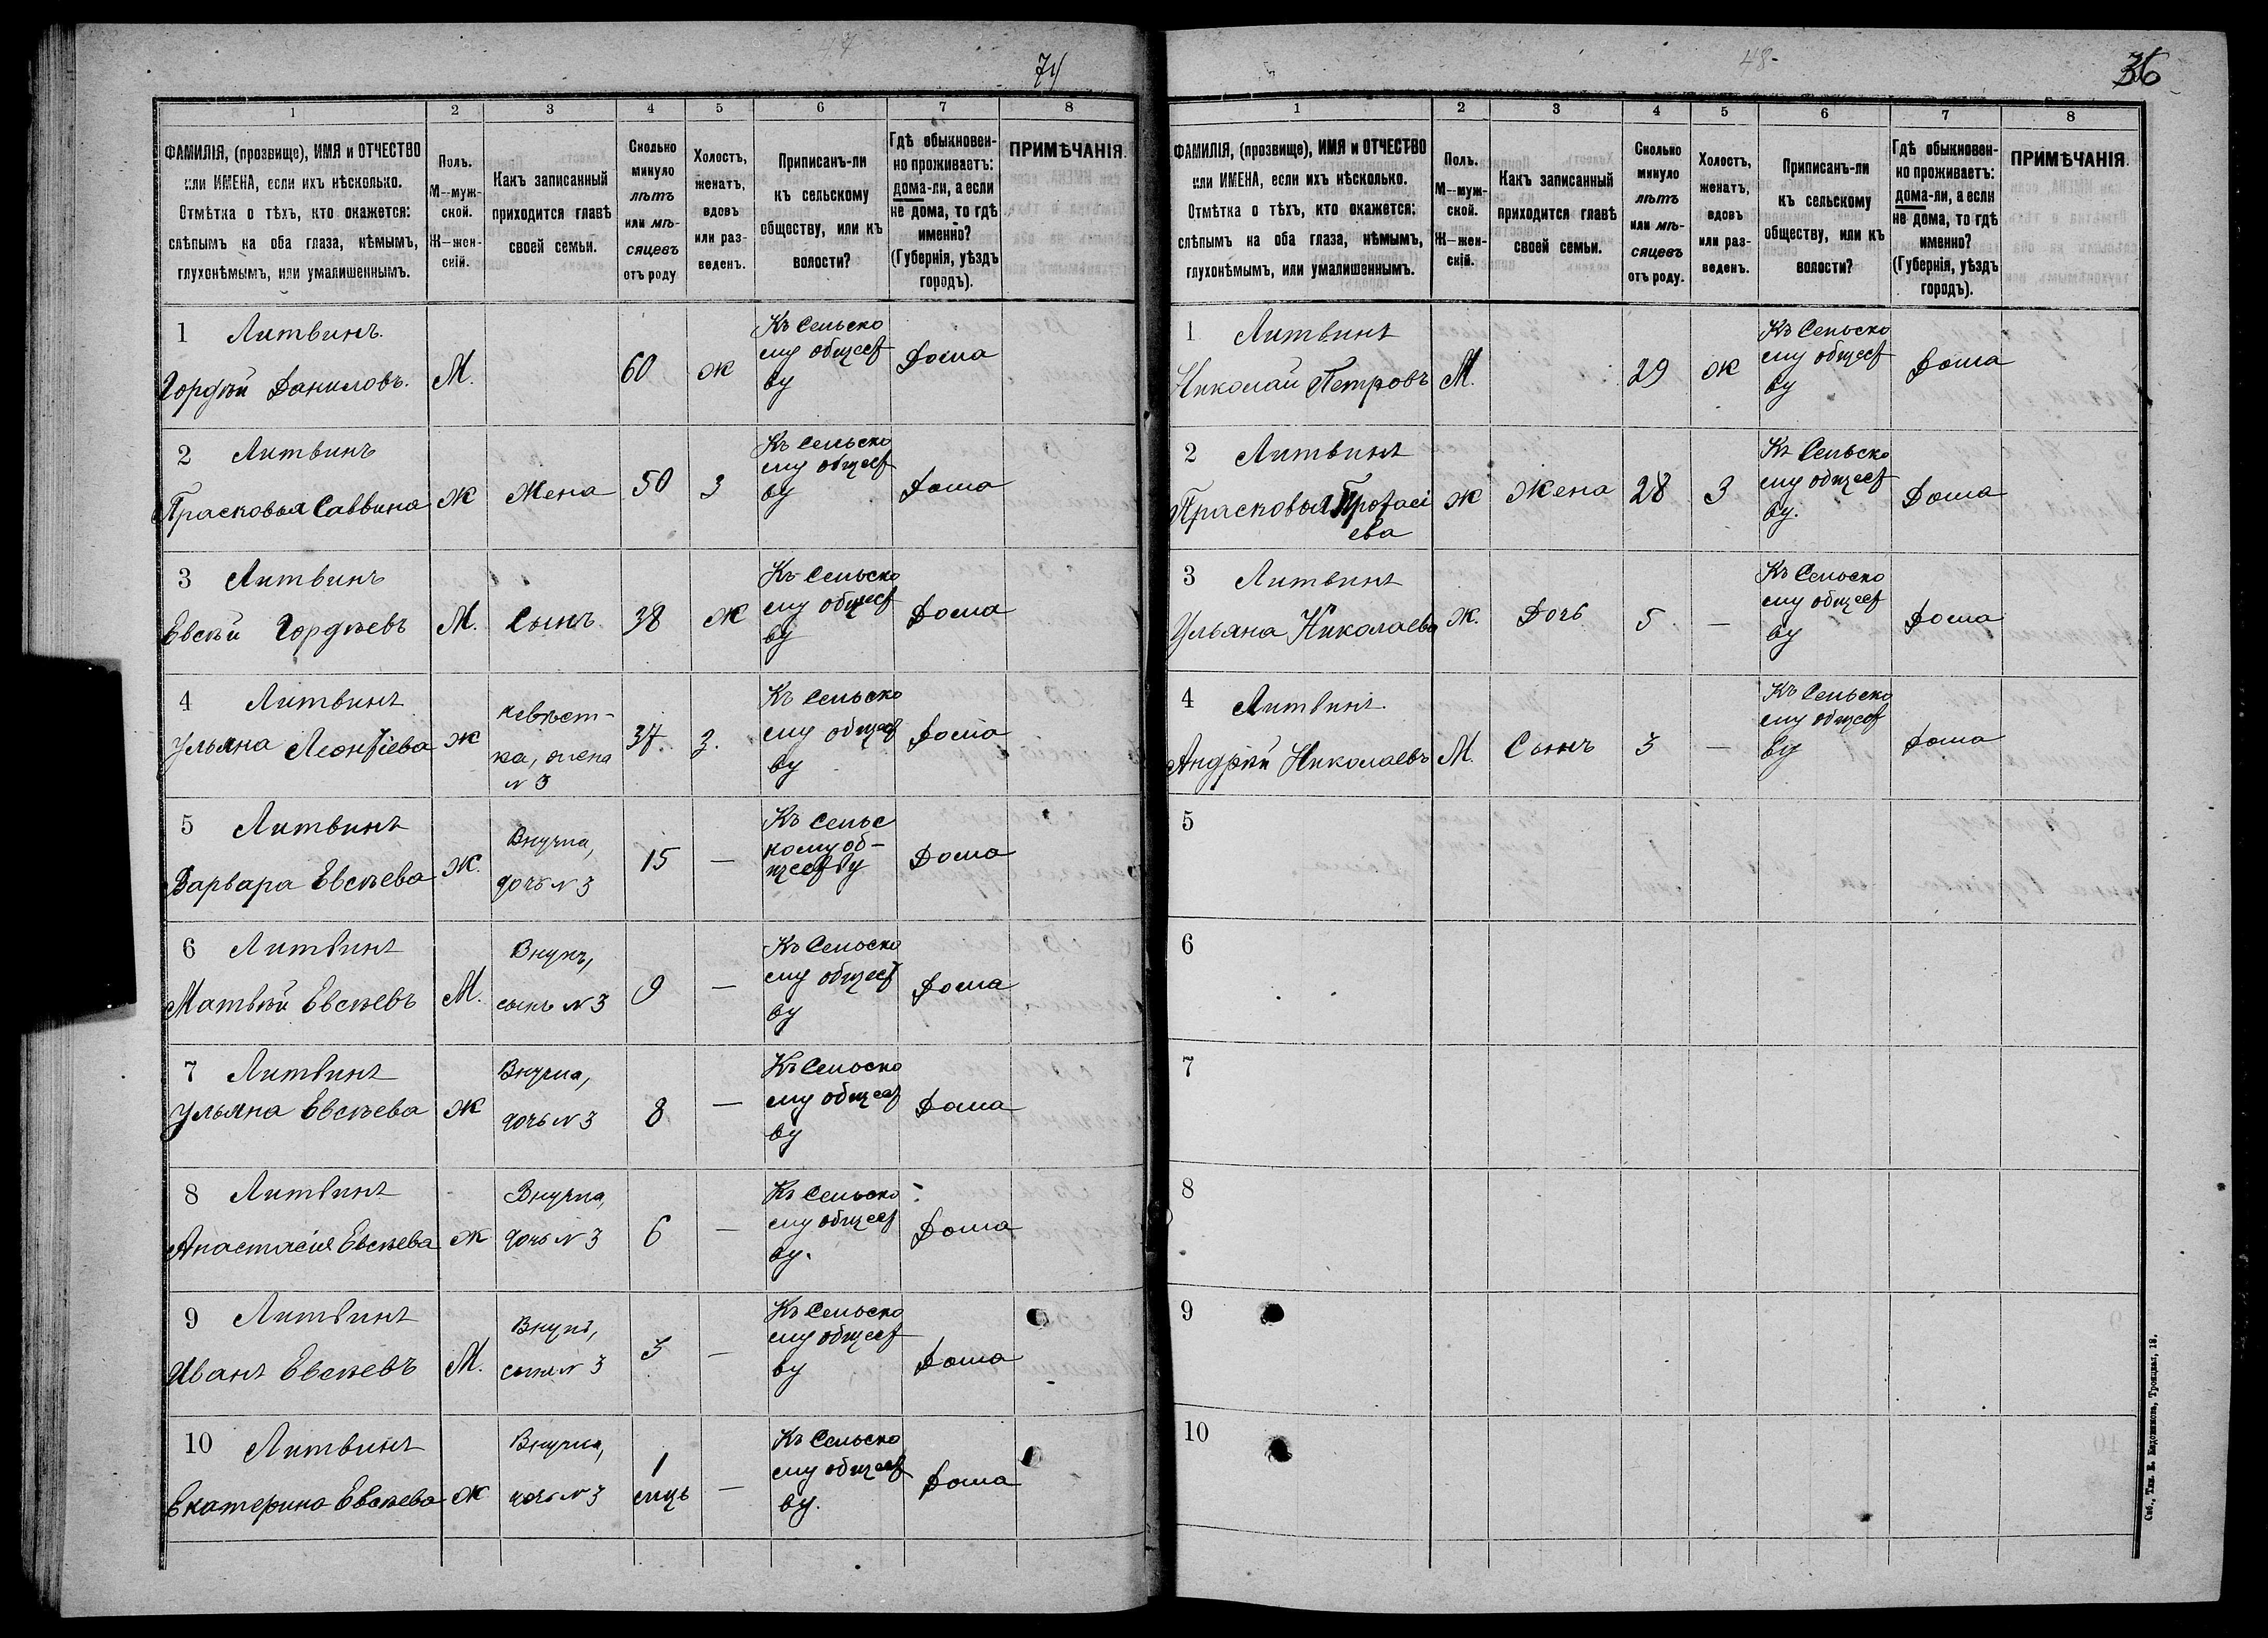 47
74
1 2 3 4 5 6 7 8
ФАМИЛІЯ, (прозвище), ИМЯ и ОТЧЕСТВО
или ИМЕНА, если ихъ нѣсколько.
Отмѣтка о тѣхъ, кто окажется:
слѣпымъ на оба глаза, нѣмымъ,
глухонѣмымъ, или умалишеннымъ.
Полъ.
М—муж-
ской.
Ж—жен-
скій.
Какъ записанный
приходится главѣ
своей семьи.
Сколько
минуло
лѣтъ
или мѣ-
сяцевъ
отъ роду
Холостъ,
женатъ,
вдовъ
или раз-
веденъ.
Приписанъ-ли
къ сельскому
обществу, или къ
волости?
Гдѣ обыкновен-
но проживаетъ:
дома-ли, а если
не дома, то гдѣ
именно?
(Губернія, уѣздъ
городъ).
ПРИМѢЧАНІЯ.
1 Литвинъ.
Гордѣй Даниловъ.
М.
60
ж
Къ Сельско
му общест
ву
Дома
2 Литвинъ
Прасковья Саввина
ж
Жена
50
З
Къ Сельско
му общест
ву
Дома
3 Литвинъ
Евсѣй Гордѣевъ
М.
Сынъ
38
Ж
Къ Сельско
му общест
ву
Дома
4 Литвинъ
Ульяна Леонтіева
ж
невѣст-
ка, жена
N 3
37.
З.
Къ Сельско
му общест
ву
Дома
5 Литвинъ
Варвара Евсѣева
Ж.
Внучка,
дочь N 3
15
—
Къ Сельс
кому об-
ществу
Дома
6 Литвинъ
Матвѣй Евсѣевъ
М.
Внукъ,
сынъ N 3
9
—
Къ Сельско
му общест
ву
Дома
7 Литвинъ
Ульяна Евсѣева
ж
Внучка,
дочь N 3
8
—
Къ Сельско
му общест
ву
Дома
8 Литвинъ
Анастасія Евсѣева
ж
Внучка,
дочь N 3
6
—
Къ Сельско
му общест
ву.
Дома
9 Литвинъ
Иванъ Евсѣевъ
М.
Внукъ,
сынъ N 3
3
—
Къ Сельско
му общест
ву
Дома
10 Литвинъ
Екатерина Евсѣева
ж
Внучка,
дочь N 3
1
мць
—
Къ Сельско
му общест
ву.
Дома
48
36
1 2 3 4 5 6 7 8
ФАМИЛІЯ, (прозвище), ИМЯ и ОТЧЕСТВО
или ИМЕНА, если ихъ нѣсколько.
Отмѣтка о тѣхъ, кто окажется:
слѣпымъ на оба глаза, нѣмымъ,
глухонѣмымъ, или умалишеннымъ.
Полъ.
М—муж-
ской.
Ж—жен-
скій.
Какъ записанный
приходится главѣ
своей семьи.
Сколько
минуло
лѣтъ
или мѣ-
сяцевъ
отъ роду.
Холостъ,
женатъ,
вдовъ
или раз-
веденъ.
Приписанъ-ли
къ сельскому
обществу, или къ
волости?
Гдѣ обыкновен-
но проживаетъ:
дома-ли, а если
не дома, то гдѣ
именно?
(Губернія, уѣздъ
городъ).
ПРИМѢЧАНІЯ.
1 Литвинъ
Николай Петровъ
М.
29
ж
Къ Сельско
му общест
ву
Дома
2 Литвинъ
Прасковья Протасі
ева
ж
Жена
28
З
Къ Сельско
му общест
ву.
Дома
3 Литвинъ
Ульяна Николаева
Ж.
Дочь
5
—
Къ Сельско
му общест
ву
Дома
4 Литвинъ.
Андрѣй Николаевъ
М.
Сынъ
3
—
Къ Сельско
му общест
ву
Дома
5
6
7
8
9
10
Спб., Тип. Е. Евдокимова, Троицкая, 18.